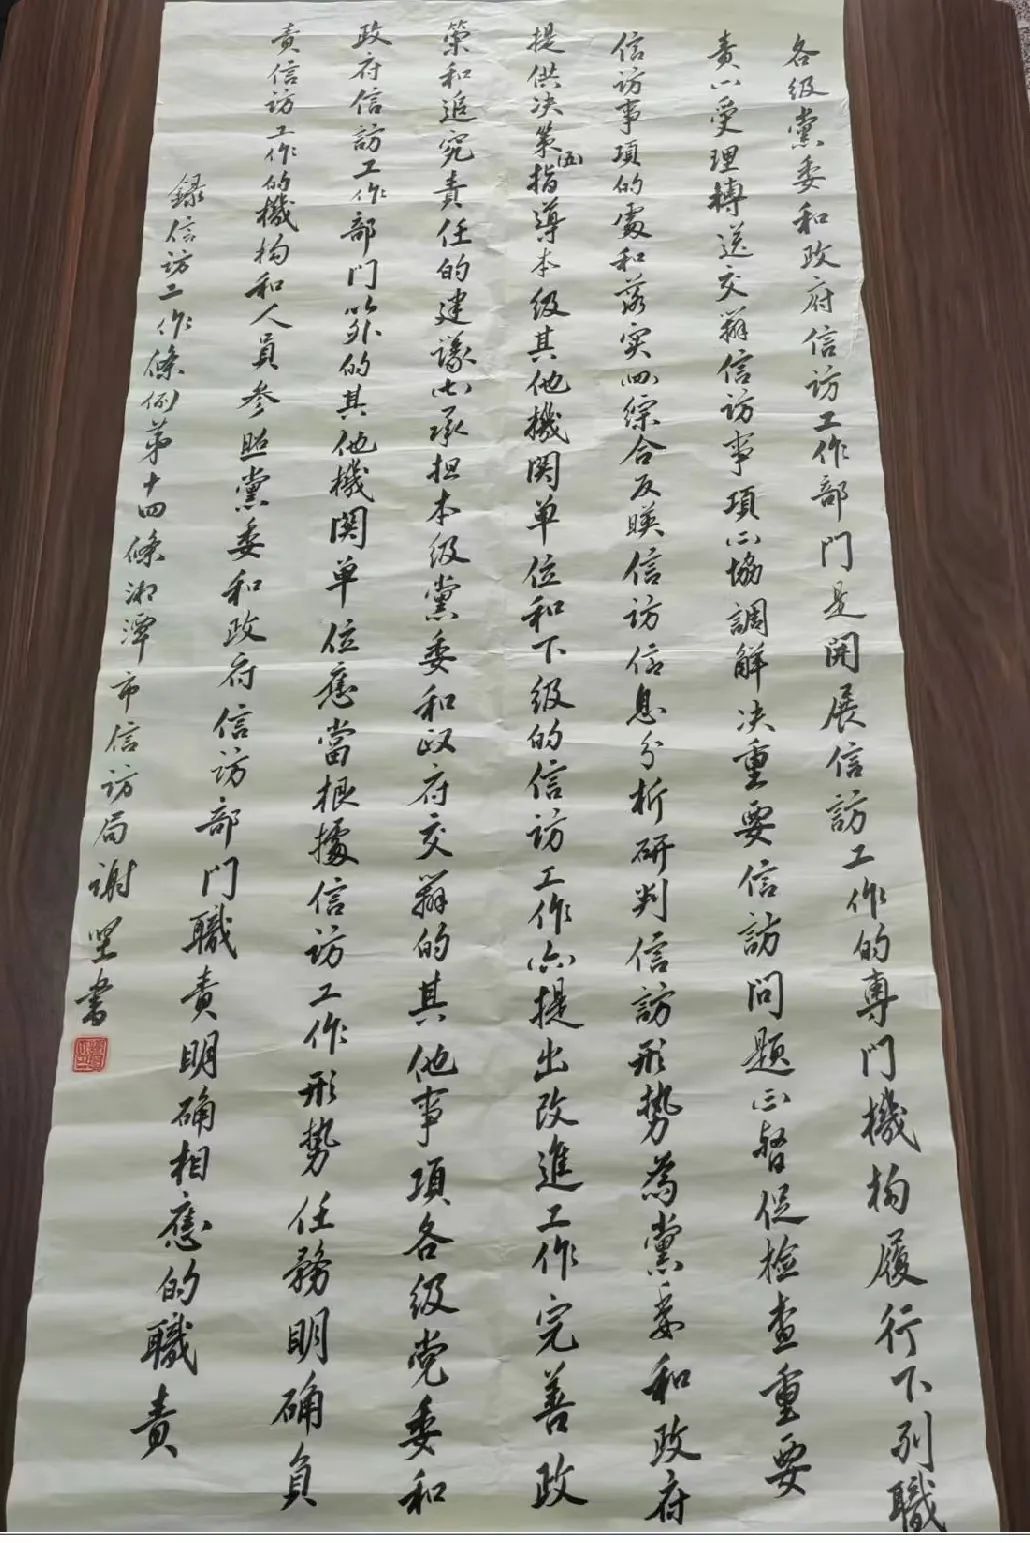 各级黨委和政府信访工作部门是開展信訪工作的專门機构履行下列職
责㈠受理轉送交辦信访事項㈡協調解决重要信訪问題㈢督促检查重要
信访事項的處和落实㈣综合反映信访信息分析研判信訪形势為黨委和政府
提供决策㈤指導本级其他機関单位和下级的信访工作㈥提出改進工作完善政
策和追究责任的建議㈦承担本级黨委和政府交辦的其他事項各级党委和
政府信訪工作部门以外的其他機関单位應當根據信访工作形势任務明确負
责信访工作的機构和人員参照黨委和政府信访部门職责明确相應的職责
録信访工作條例第十四條湘潭市信访局谢坚書